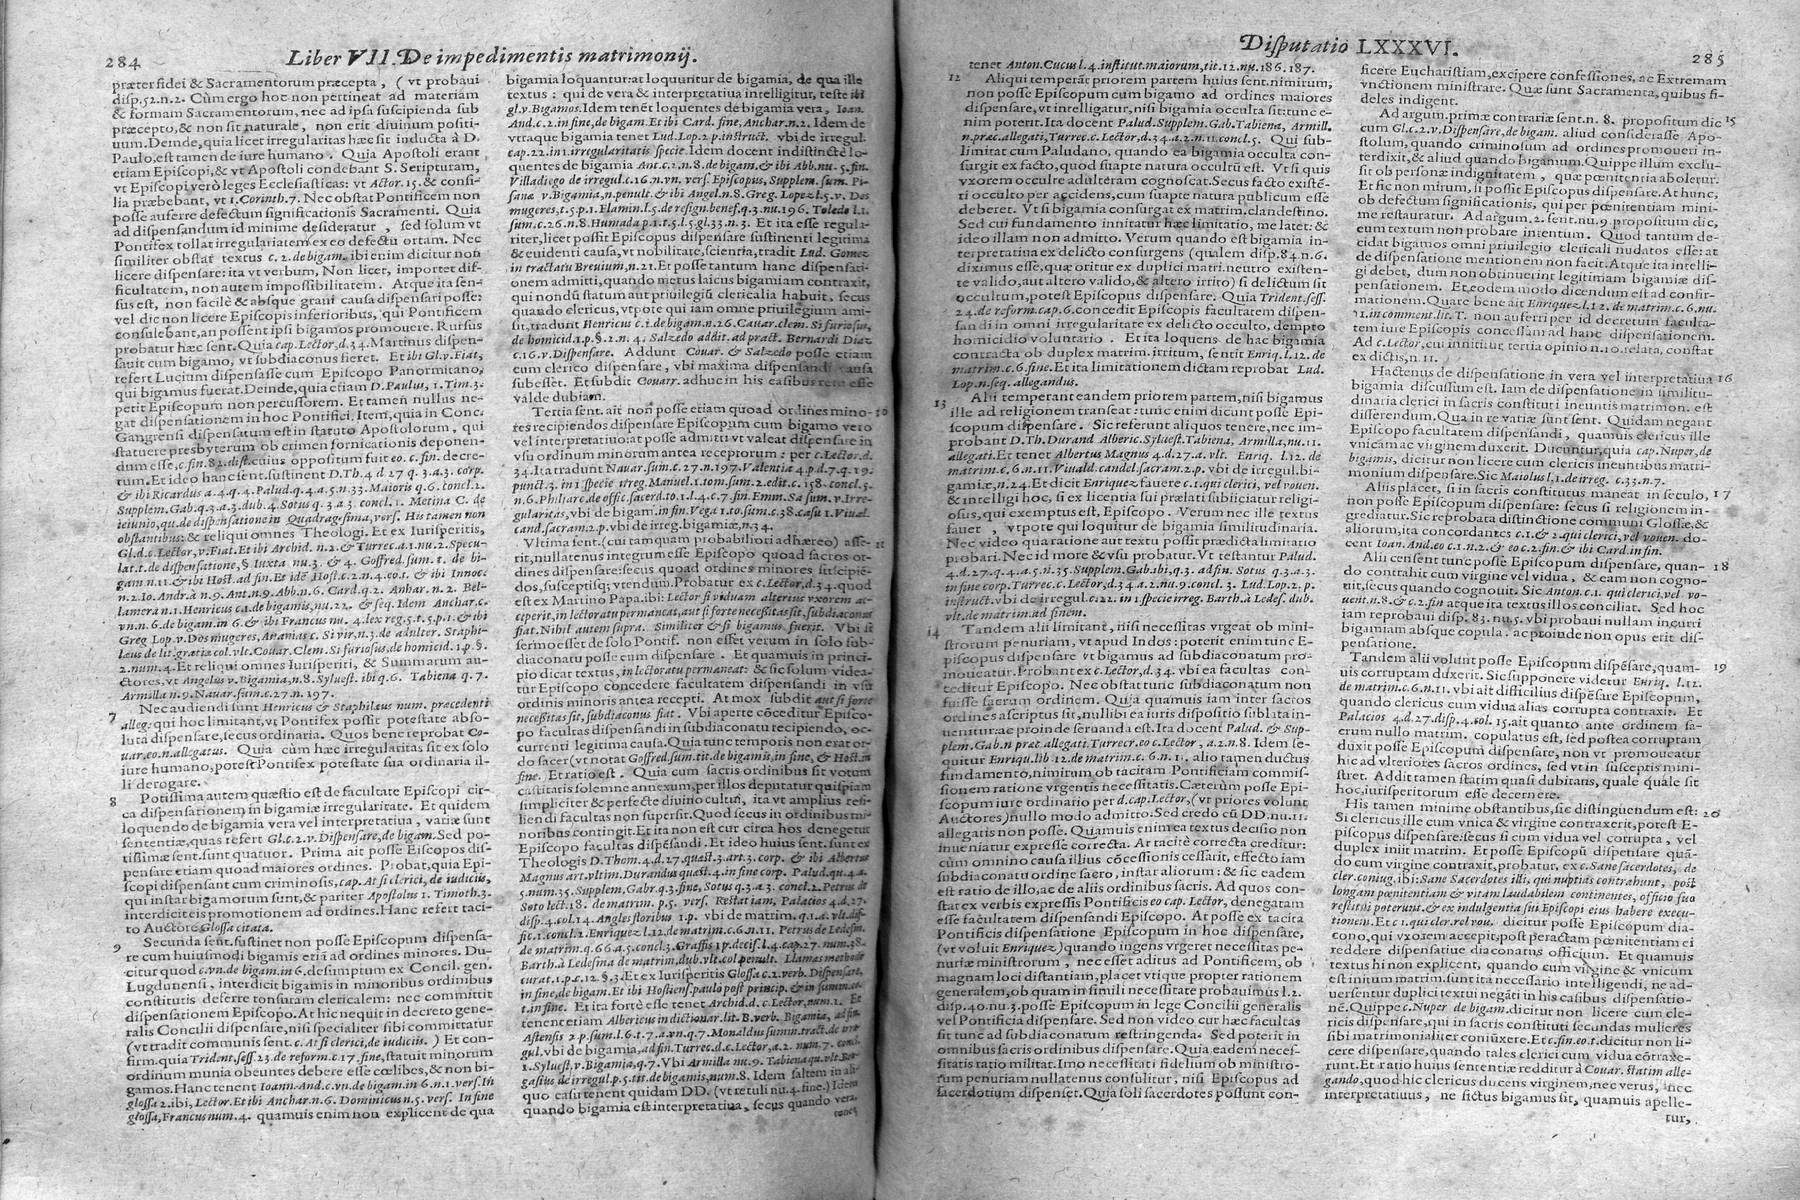 284
Liber VII. De impedimentis matrimonij.
præter fidei & Sacramentorum præcepta, (vt probaui
disp.52.n.2. Cùm ergo hoc non pertineat ad materiam
& formam Sacramentorum, nec ad ipsa suscipienda sub
præcepto, & non sit naturale, non erit diuinum positi-
uum. Deinde, quia licet irregularitas hæc sit inducta à D.
Paulo, est tamen de iure humano. Quia Apostoli erant
etiam Episcopi, & vt Apostoli condebant S. Scripturam,
vt Episcopi verò leges Ecclesiasticas: vt Actor.15. & consi-
lia præbebant, vt 1.Corinth.7. Nec obstat Pontificem non
posse auferre defectum significationis Sacramenti. Quia
ad dispensandum id minime desideratur, sed solum vt
Pontifex tollat irregularitatem ex eo defectu ortam. Nec
similiter obstat textus c.2.de bigam. ibi enim dicitur non
licere dispensare: ita vt verbum, Non licet, importet dif-
ficultatem, non autem impossibilitatem. Atque ita sen-
sus est, non facilè & absque graui causa dispensari posse:
vel dic non licere Episcopis inferioribus, qui Pontificem
consulebant, an possent ipsi bigamos promouere. Rursus
probatur hæc sent. Quia cap.Lector,d.34. Martinus dispen-
sauit cum bigamo, vt subdiaconus fieret. Et ibi Gl.v.Fiat,
refert Lucium dispensasse cum Episcopo Panormitano,
qui bigamus fuerat. Deinde, quia etiam D.Paulus, 1.Tim.3.
petit Episcopum non percussorem. Et tamen nullus ne-
gat dispensationem in hoc Pontifici. Item, quia in Conc.
Gangrensi dispensatum est in statuto Apostolorum, qui
statuere presbyterum ob crimen fornicationis deponen-
dum esse, c.fin.82.dist. cuius oppositum fuit eo.c.fin. decre-
tum. Et ideo hanc sent. sustinent D.Th.4 d 27 q.3.a.3. corp.
& ibi Ricardus a.4.q.4. Palud.q.4.a.5.n.33. Maioris q.6. concl.2.
Supplem.Gab.q.3.a.3.dub.4. Sotus q.3 a.3. concl.1. Metina C. de
ieiunio,qu.de dispensatione in Quadragesima,vers. His tamen non
obstantibus: & reliqui omnes Theologi. Et ex Iurisperitis,
Gl.d.c.Lector,v.Fiat. Et ibi Archid. n.2.& Turrec.a.1.nu.2. Specu-
lat.t.de dispensatione,§ Iuxta nu.3. & 4. Goffred.sum.t. de bi-
gam n.11.& ibi Host.ad fin. Et idē Host.c.2.n.4.eo.t. & ibi Innoc.
n.2. Io.Andr.à n.9. Ant.n.9. Abb.n.6. Card.q.2. Anhar. n.2. Bel-
lamera n.1. Henricus c.1.de bigamis,nu.22. & seq. Idem Anchar.c.
vn.n.6.de bigam in 6. & ibi Francus nu. 4.lex reg.t.5.p.1. & ibi
Greg Lop.v.Dos mugeres, Ananias c. Si vir,n.3.de adulter. Staphi-
læus de lit.gratiæ col.vlt. Couar.Clem.Si furiosus,de homicid.1.p.§.
2.num.4. Et reliqui omnes Iurisperiti, & Summarum au-
ctores, vt Angelus v.Bigamia,n.8. Syluest. ibi q.6. Tabiena q.7.
Armilla n.9. Nauar.sum.c.27.n.197.
7 Nec audiendi sunt Henricus & Staphilæus num. præcedenti
alleg. qui hoc limitant, vt Pontifex possit potestate abso-
luta dispensare, secus ordinaria. Quos bene reprobat Co-
uar.eo.n.allegatus. Quia cùm hæc irregularitas sit ex solo
iure humano, potest Pontifex potestate sua ordinaria il-
li derogare.
8 Potissima autem quæstio est de facultate Episcopi cir-
ca dispensationem in bigamiæ irregularitate. Et quidem
loquendo de bigamia vera vel interpretatiua, variæ sunt
sententiæ, quas refert Gl.c.2.v.Dispensare,de bigam. Sed po-
tissimæ sent. sunt quatuor. Prima ait posse Episcopos dis-
pensare etiam quoad maiores ordines. Probat, quia Epi-
scopi dispensant cum criminosis, cap.At si clerici, de iudiciis,
qui instar bigamorum sunt, & pariter Apostolus 1. Timoth.3.
interdicit eis promotionem ad ordines. Hanc refert taci-
to Auctore Glossa citata.
9 Secunda sent. sustinet non posse Episcopum dispensa-
re cum huiusmodi bigamis etiā ad ordines minores. Du-
citur quod c.vn.de bigam.in 6. desumptum ex Concil. gen.
Lugdunensi, interdicit bigamis in minoribus ordinibus
constitutis deferre tonsuram clericalem: nec committit
dispensationem Episcopo. At hic nequit in decreto gene-
ralis Concilii dispensare, nisi specialiter sibi committatur
(vt tradit communis sent. c. At si clerici,de iudiciis.) Et con-
firm. quia Trident.sess.23 de reform.c.17.fine, statuit minorum
ordinum munia obeuntes debere esse cœlibes, & non bi-
gamos. Hanc tenent Ioann.And.c.vn.de bigam.in 6.n.1.vers.In
glossa 2.ibi, Lector. Et ibi Anchar n.6. Dominicus n.5. vers. In fine
glossa, Francus num.4. quamuis enim non explicent de qua
bigamia loquantur: at loquuntur de bigamia, de qua ille
textus: qui de vera & interpretatiua intelligitur, teste ibi
gl.v.Bigamos. Idem tenēt loquentes de bigamia vera, Ioan.
And.c.2.in fine,de bigam. Et ibi Card. fine, Anchar.n.2. Idem de
vtraque bigamia tenet Lud.Lop.2 p.instruct. vbi de irregul.
cap.22.in 1.irregularitatis specie. Idem docent indistinctè lo-
quentes de bigamia Ant.c.2.n.8.de bigam.& ibi Abb.nu.5.fin.
Villadiego de irregul.c.16.n.vn. vers. Episcopus, Supplem.sum. Pi-
sanæ v.Bigamia,n.penult.& ibi Angel.n.8. Greg.Lopez l.5.v. Dos
mugeres,t.5.p.1. Flamin.l.5.de resign.benef.q.3.nu.196. Toledo l.1.
sum.c.26.n.8. Humada p.1.t.5.l.5.gl.33.n.3. Et ita esse regula-
riter, licet possit Episcopus dispensare sustinenti legitima
& euidenti causa, vt nobilitate, scientia, tradit Lud. Gomez
in tractatu Breuium,n.21. Et posse tantum hanc dispensati-
onem admitti, quando metus laicus bigamiam contraxit,
qui nondū statum aut priuilegiū clericalia habuit, secus
quando clericus, vtpote qui iam omne priuilegium ami-
sit, tradunt Henricus c.1.de bigam.n.26. Couar.clem. Si furiosus,
de homicid.1.p.§.2.n. 4. Salzedo addit.ad pract. Bernardi Diaz
c.16.v.Dispensare. Addunt Couar. & Salzedo posse etiam
cum clerico dispensare, vbi maxima dispensandi causa
subesset. Et subdit Couarr. adhuc in his casibus rem esse
valde dubiam.
Tertia sent. ait non posse etiam quoad ordines mino- 10
res recipiendos dispensare Episcopum cum bigamo vero
vel interpretatiuo: at posse admitti vt valeat dispensare in
vsu ordinum minorum antea receptorum: per c.Lector.d.
34. Ita tradunt Nauar.sum.c.27.n.197. Valentia 4.p.d.7.q.19.
punct.3. in 1 specie irreg. Manuel.1.tom.sum.2.edit.c. 158.concl.5.
n.6. Philiarc.de offic.sacerd.to.1.l.4.c.7.fin. Emm.Sa sum.v.Irre-
gularitas, vbi de bigam. in fin. Vega 1.to.sum.c.38.casu 1. Viual.
cand.sacram.2.p. vbi de irreg. bigamiæ, n.34.
Vltima sent. (cui tamquam probabiliori adhæreo) asse- 11
rit, nullatenus integrum esse Episcopo quoad sacros or-
dines dispensare: secus quoad ordines minores suscipiē-
dos, susceptisq; vtendum. Probatur ex c.Lector,d.34. quod
est ex Martino Papa. ibi: Lector si viduam alterius vxorem ac-
ceperit, in lectoratu permaneat, aut si forte necessitas sit, subdiaconus
fiat. Nihil autem supra. Similiter & si bigamus fuerit. Vbi si
sermo esset de solo Pontif. non esset verum in solo sub-
diaconatu posse cum dispensare. Et quamuis in princi-
pio dicat textus, in lectoratu permaneat: & sic solum videa-
tur Episcopo concedere facultatem dispensandi in vsu
ordinis minoris antea recepti. At mox subdit aut si forte
necessitas sit, subdiaconus fiat. Vbi aperte cōceditur Episco-
po facultas dispensandi in subdiaconatu recipiendo, oc-
currenti legitima causa. Quia tunc temporis non erat or-
do sacer (vt notat Goffred.sum.tit.de bigamis,in fine, & Host.in
fine. Et ratio est. Quia cum sacris ordinibus sit votum
castitatis solemne annexum, per illos deputatur quispiam
simpliciter & perfecte diuino cultui, ita vt amplius resi-
liendi facultas non supersit. Quod secus in ordinibus mi-
noribus contingit. Et ita non est cur circa hos denegetur
Episcopo facultas dispēsādi. Et ideo huius sent. sunt ex
Theologis D.Thom.4.d.27.quæst.3.art.3. corp. & ibi Albertus
Magnus art.vltim. Durandus quæst.4.in fine corp. Palud.qu.4.a.
5.num.35. Supplem.Gabr.q.3.fine, Sotus q.3.a.3. concl.2. Petrus de
Soto lect.18. de matrim. p.5. vers. Restat iam, Palacios 4.d.27.
disp.4.col.14. Angles floribus 1.p. vbi de matrim. q.1.a.vlt.dif-
fic.1.concl.2. Enriquez l.12.de matrim.c.6.n.11. Petrus de Ledesm.
de matrim.q.66.a.5.concl.3. Graffis 1.p.decis.l.4.cap.27. num.38.
Barth.à Ledesma de matrim.dub.vlt.col.penult. Llamas methodi
curat.1.p.c.12.§.3. Et ex Iurisperitis Glossa c.2.verb. Dispensare,
in fine,de bigam. Et ibi Hostiens.paulo post princip. & in summa eo.t.
in fine. Et ita fortè esse tenet Archid.d.c.Lector,num.1. Et
tenent etiam Albericus in dictionar.lit.B.verb. Bigamia, ad fin.
Astensis 2.p.sum.l.6.t.7.a.vn.q.7. Monaldus summ.tract.de irre
gul. vbi de bigamia, ad fin. Turrec.d.c.Lector,a.2. num.7. concl.
1. Syluest.v.Bigamia,q.7. Vbi Armilla nu.9. Tabiena qu.vlt. Ber-
gasius de irregul.p.5.tit.de bigamis,num.8. Idem saltem in ali-
quo casu tenent quidam DD. (vt retuli nu.4.fine.) Idem
quando bigamia est interpretatiua, secus quando vera
tenet
Disputatio LXXXVI.
285
tenet Anton.Cucus l.4.institut.maiorum,tit.12.nu.186.187.
12 Aliqui temperāt priorem partem huius sent. nimirum,
non posse Episcopum cum bigamo ad ordines maiores
dispensare, vt intelligatur, nisi bigamia occulta sit: tunc e-
nim poterit. Ita docent Palud.Supplem.Gab.Tabiena, Armill.
n.præc.allegati,Turrec.c.Lector,d.34.a.2.n.11.concl.5. Qui sub-
limitat cum Paludano, quando ea bigamia occulta con-
surgit ex facto, quod suapte natura occultū est. Vt si quis
vxorem occulte adulteram cognoscat. Secus facto existē-
ti occulto per accidens, cum suapte natura publicum esse
deberet. Vt si bigamia consurgat ex matrim. clandestino.
Sed cui fundamento innitatur hæc limitatio, me latet: &
ideo illam non admitto. Verum quando est bigamia in-
terpretatiua ex delicto consurgens (qualem disp.84 n.6.
diximus esse, quæ oritur ex duplici matri. neutro existen-
te valido, aut altero valido, & altero irrito) si delictum sit
occultum, potest Episcopus dispensare. Quia Trident.sess.
24.de reform.cap.6. concedit Episcopo facultatem dispen-
sandi in omni irregularitate ex delicto occulto, dempto
homicidio voluntario. Et ita loquens de hac bigamia
contracta ob duplex matrim. irritum, sentit Enriq. l.12. de
matrim. c.6.fine. Et ita limitationem dictam reprobat Lud.
Lop.n.seq. allegandus.
13 Alii temperant eandem priorem partem, nisi bigamus
ille ad religionem transeat: tunc enim dicunt posse Epi-
scopum dispensare. Sic referunt aliquos tenere, nec im-
probant D.Th. Durand Alberic. Syluest. Tabiena, Armilla,nu.11.
allegati. Et tenet Albertus Magnus 4.d.27.a. vlt. Enriq. l.12. de
matrim. c.6.n.11. Viuald.candel.sacram.2.p. vbi de irregul. bi-
gamiæ, n.24. Et dicit Enriquez fauere c.1.qui clerici, vel vouen.
& intelligi hoc, si ex licentia sui prælati subiiciatur religi-
osus, qui exemptus est, Episcopo. Verum nec ille textus
fauet, vtpote qui loquitur de bigamia similitudinaria.
Nec video qua ratione aut textu possit prædicta limitatio
probari. Nec id more & vsu probatur. Vt testantur Palud.
4.d.27.q.4.a.5.n.35. Supplem.Gab.ibi,q.3. ad fin. Sotus q.3.a.3.
in fine corp. Turrec.c.Lector,d 34.a 2.nu.9.concl.3. Lud.Lop.2.p.
instruct. vbi de irregul. c.22. in 1 specie irreg. Barth.à Ledes. dub.
vlt.de matrim.ad finem.
14 Tandem alii limitant, nisi necessitas vrgeat ob mini-
strorum penuriam, vt apud Indos: poterit enim tunc E-
piscopus dispensare vt bigamus ad subdiaconatum pro-
moueatur. Probant ex c.Lector,d.34. vbi ea facultas con-
ceditur Episcopo. Nec obstat tunc subdiaconatum non
fuisse sacrum ordinem. Quia quamuis iam inter sacros
ordines ascriptus sit, nullibi ea iuris dispositio sublata in-
uenitur: ac proinde seruanda est. Ita docet Palud. & Sup-
plem.Gab.n præc.allegati. Turrecr.eo c.Lector, a.2.n.8. Idem se-
quitur Enriqu.lib 12.de matrim. c.6 n.11. alio tamen ductus
fundamento, nimirum ob tacitam Pontificiam commis-
sionem ratione vrgentis necessitatis. Cæterùm posse Epi-
scopum iure ordinario per d.cap.Lector, (vt priores volunt
Auctores) nullo modo admitto. Sed credo cū DD.nu.11.
allegatis non posse. Quamuis enim ea textus decisio non
inueniatur expresse correcta. At tacitè correcta creditur:
cùm omnino causa illius cōcessionis cessarit, effecto iam
subdiaconatu ordine sacro, instar aliorum: & sic eadem
est ratio de illo, ac de aliis ordinibus sacris. Ad quos con-
stat ex verbis expressis Pontificis eo cap. Lector, denegatam
esse facultatem dispensandi Episcopo. At posse ex tacita
Pontificis dispensatione Episcopum in hoc dispensare,
(vt voluit Enriquez) quando ingens vrgeret necessitas pe-
nuriæ ministrorum, nec esset aditus ad Pontificem, ob
magnam loci distantiam, placet vtique propter rationem
generalem, ob quam in simili necessitate probauimus l.2.
disp.40.nu.3. posse Episcopum in lege Concilii generalis
vel Pontificia dispensare. Sed non video cur hæc facultas
sit tunc ad subdiaconatum restringenda. Sed poterit in
omnibus sacris ordinibus dispensare. Quia eadem neces-
sitatis ratio militat. Imo necessitati fidelium ob ministro-
rum penuriam nullatenus consulitur, nisi Episcopus ad
sacerdotium dispenset. Quia soli sacerdotes possunt con-
ficere Eucharistiam, excipere confessiones, ac Extremam
vnctionem ministrare. Quæ sunt Sacramenta, quibus fi-
deles indigent.
Ad argum. primæ contrariæ sent. n. 8. propositum dic 15
cum Gl.c.2.v.Dispensare,de bigam. aliud considerasse Apo-
stolum, quando criminosum ad ordines promoueri in-
terdixit, & aliud quando bigamum. Quippe illum exclu-
sit ob personæ indignitatem, quæ pœnitentia aboletur.
Et sic non mirum, si possit Episcopus dispensare. At hunc,
ob defectum significationis, qui per pœnitentiam mini-
me restauratur. Ad argum.2. sent. nu.9 propositum dic,
eum textum non probare intentum. Quod tantum de-
cidat bigamos omni priuilegio clericali nudatos esse: at
de dispensatione mentionem non facit. Atque ita intelli-
gi debet, dum non obtinuerint legitimam bigamiæ dis-
pensationem. Et eodem modo dicendum est ad confir-
mationem. Quare bene ait Enriquez l.12.de matrim.c.6.nu.
11.in comment.lit. T. non auferri per id decretum faculta-
tem iure Episcopis concessam ad hanc dispensationem.
Ad c.Lector, cui innititur tertia opinio n.10.relata, constat
ex dictis, n. 11.
Hactenus de dispensatione in vera vel interpretatiua 16
bigamia discussum est. Iam de dispensatione in similitu-
dinaria clerici in sacris constituti ineuntis matrimon. est
disserendum. Qua in re variæ sunt sent. Quidam negant
Episcopo facultatem dispensandi, quamuis clericus ille
vnicam ac virginem duxerit. Ducuntur, quia cap.Nuper,de
bigamis, dicitur non licere cum clericis ineuntibus matri-
monium dispensare. Sic Maiolus l.1.de irreg. c.33.n.7.
Aliis placet, si in sacris constitutus maneat in sæculo, 17
non posse Episcopum dispensare: secus si religionem in-
grediatur. Sic reprobata distinctione communi Glossæ, &
aliorum, ita concordantes c.1.& 2.qui clerici,vel vouen. do-
cent Ioan.And.eo c.1.n.2.& eo c.2.fin.& ibi Card.in fin.
Alii censent tunc posse Episcopum dispensare, quan- 18
do contrahit cum virgine vel vidua, & eam non cogno-
uit, secus quando cognouit. Sic Anton.c.1. qui cleri.vel vo-
uent.n.8.& c.2.fin atque ita textus illos conciliat. Sed hoc
iam reprobaui disp. 83.nu.5. vbi probaui nullam incurri
bigamiam absque copula. ac proinde non opus erit dis-
pensatione.
Tandem alii volunt posse Episcopum dispēsare, quam- 19
uis corruptam duxerit. Sic supponere videtur Enriq. l.12.
de matrim.c.6.n.11. vbi ait difficilius dispēsare Episcopum,
quando clericus cum vidua alias corrupta contraxit. Et
Palacios 4.d.27.disp.4.col. 15. ait quanto ante ordinem sa-
crum nullo matrim. copulatus est, sed postea corruptam
duxit posse Episcopum dispensare, non vt promoueatur
hic ad vlteriores sacros ordines, sed vt in susceptis mini-
stret. Addit tamen statim quasi dubitans, quale quale sit
hoc, iurisperitorum esse decernere.
His tamen minime obstantibus, sic distinguendum est: 20
Si clericus ille cum vnica & virgine contraxerit, potest E-
piscopus dispensare: secus si cum vidua vel corrupta, vel
duplex iniit matrim. Et posse Episcopū dispensare quā-
do cum virgine contraxit, probatur, ex c.Sane sacerdotes, de
cler.coniug. ibi: Sane Sacerdotes illi, qui nuptias contrahunt, post
longam pœnitentiam & vitam laudabilem continentes, officio suo
restitui poterunt.& ex indulgentia sui Episcopi eius habere execu-
tionem. Et c 1.qui cler.vel vou. dicitur posse Episcopum dia-
cono, qui vxorem accepit, post peractam pœnitentiam ei
reddere dispensatiue diaconatus officium. Et quamuis
textus hi non explicent, quando cum virgine & vnicum
est initum matrim. sunt ita necessario intelligendi, ne ad-
uersentur duplici textui negāti in his casibus dispensatio-
nē. Quippe c.Nuper de bigam. dicitur non licere cum cle-
ricis dispensare, qui in sacris constituti secundas mulieres
sibi matrimonialiter coniūxere. Et c.fin.eo.t. dicitur non li-
cere dispensare, quando tales clerici cum vidua cōtraxe-
runt. Et ratio huius sententiæ redditur à Couar. statim alle-
gando, quod hic clericus ducens virginem, nec verus, nec
interpretatiuus, ne fictus bigamus sit, quamuis apelle-
tur,